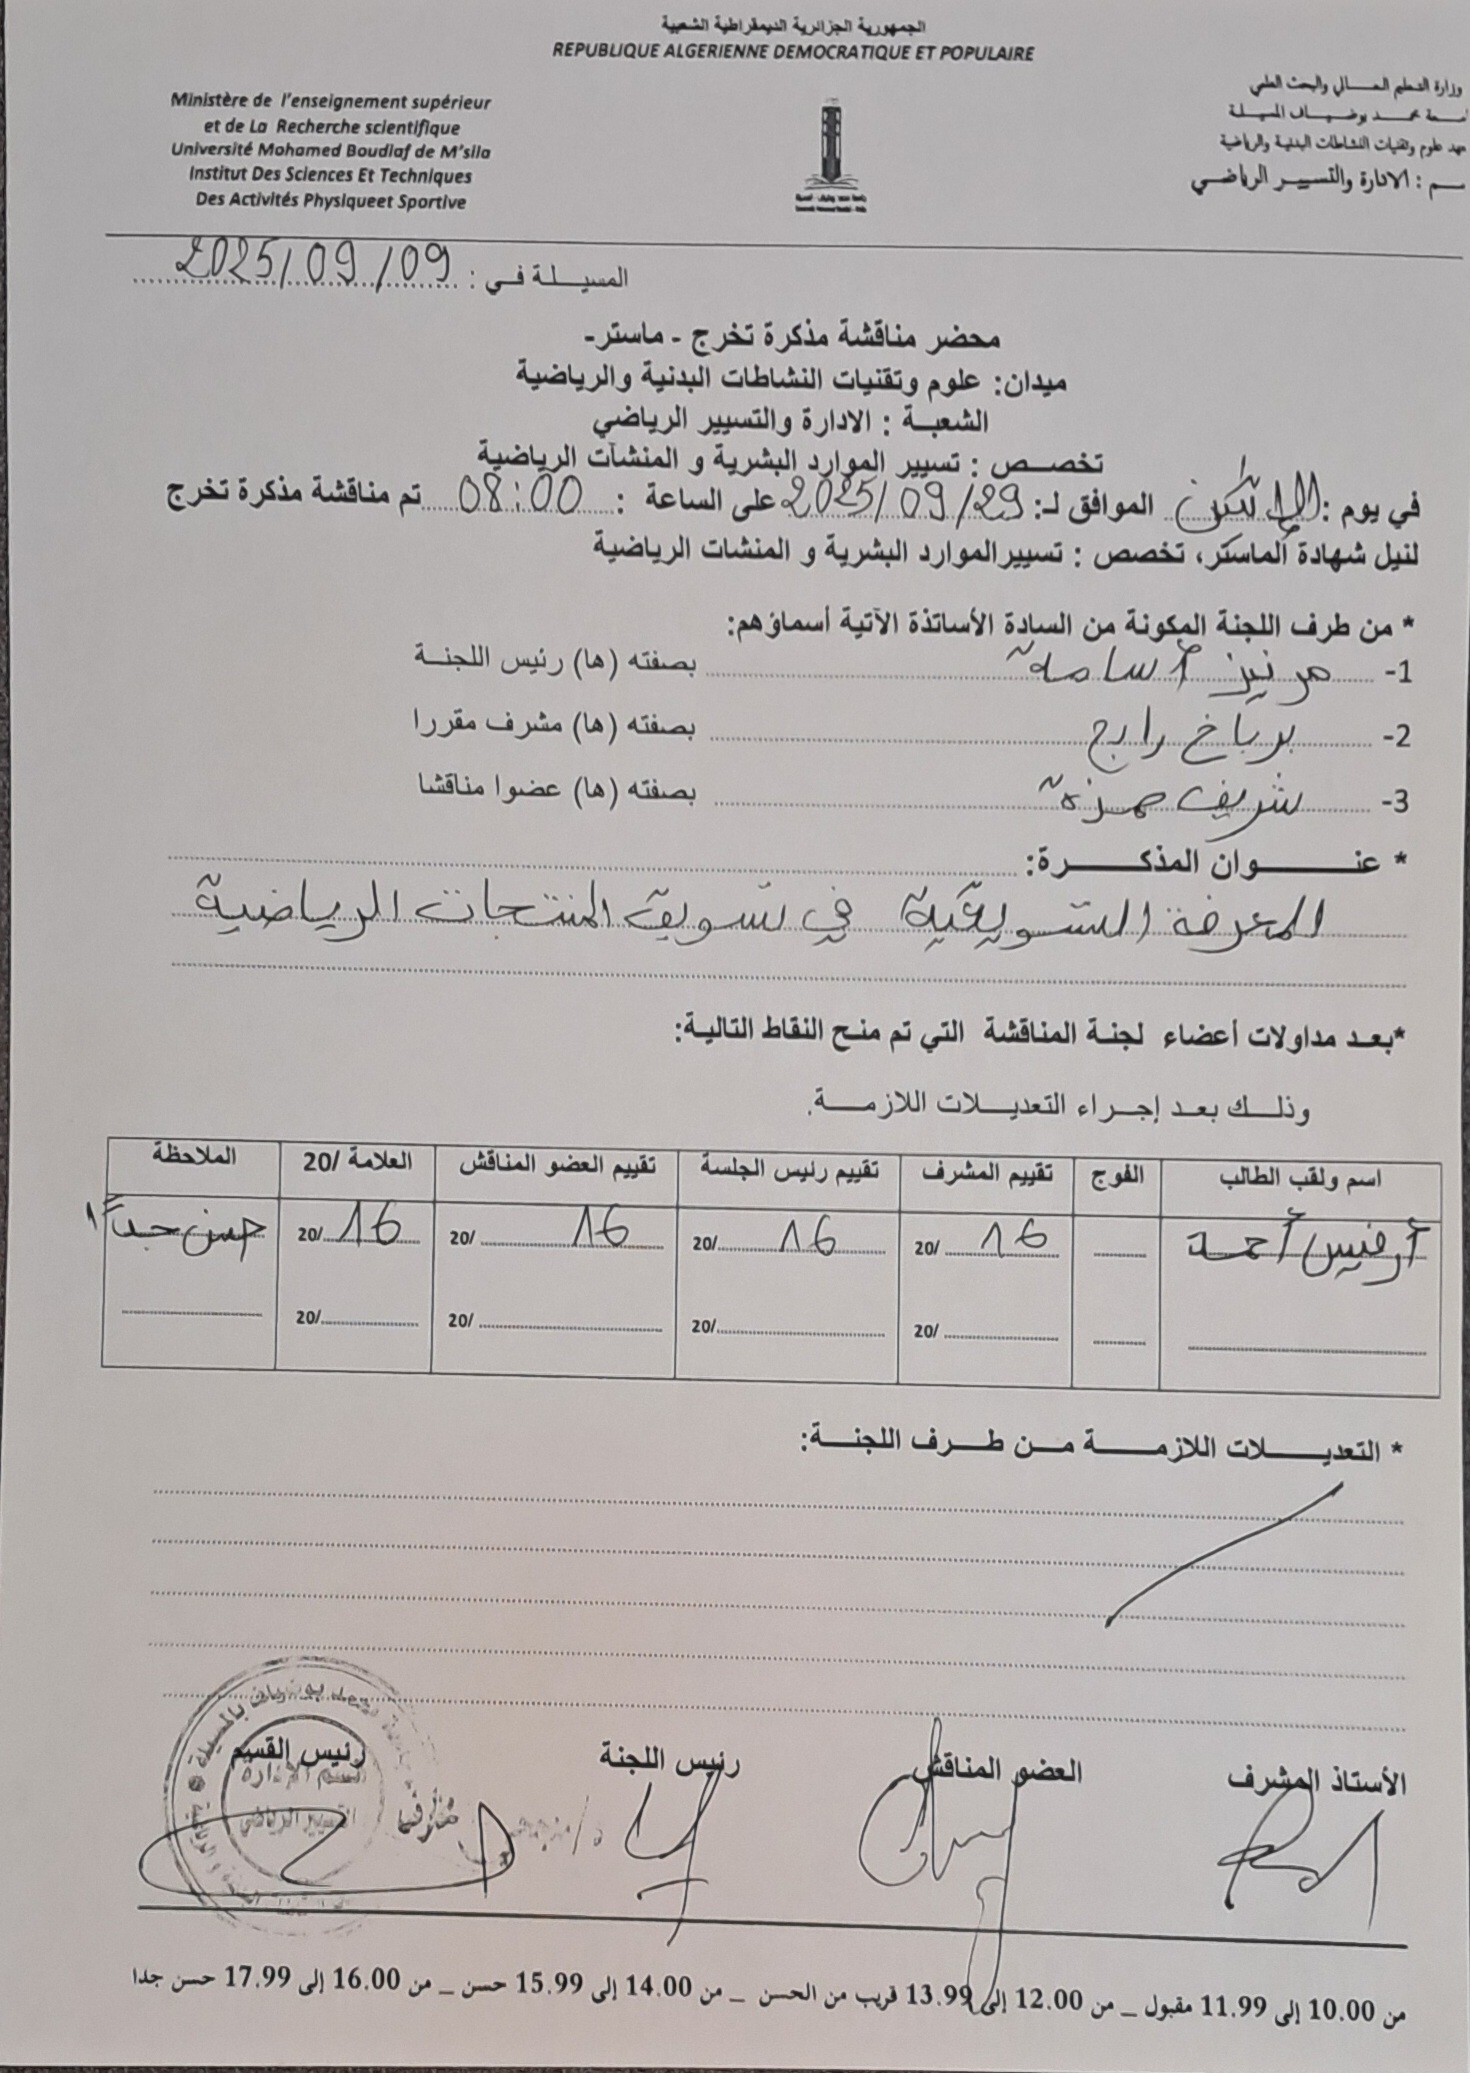 الجمهورية الجزائرية الديمقراطية الشعبية
REPUBLIQUE ALGERIENNE DEMOCRATIQUE ET POPULAIRE
Ministère de l'enseignement supérieur
et de La Recherche scientifique
Université Mohamed Boudiaf de M'sila
Institut Des Sciences Et Techniques
Des Activités Physiqueet Sportive
وزارة التعليم العـــالي والبحث العلمي
محمـــد بوضـيـــاف المسيـلـة
علوم وتقنيات النشاطات البدنية والرياضية
: الادارة والتسييـر الرياضـي
المسيـــلـة فـي : 2025/09/09
محضر مناقشة مذكرة تخرج - ماستر-
ميدان: علوم وتقنيات النشاطات البدنية والرياضية
الشعبــة : الادارة والتسيير الرياضي
تخصـــص : تسيير الموارد البشرية و المنشآت الرياضية
في يوم : الموافق لـ: 2025/09/29 على الساعة : 08:00 تم مناقشة مذكرة تخرج
لنيل شهادة الماستر، تخصص : تسييرالموارد البشرية و المنشات الرياضية
* من طرف اللجنة المكونة من السادة الأساتذة الآتية أسماؤهم:
1- مرنيز أسامة بصفته (ها) رئيس اللجنــة
2- برباخ رابح بصفته (ها) مشرف مقررا
3- شريف حمزة بصفته (ها) عضوا مناقشا
* عنــــــوان المذكــــــرة:
المعرفة التسويقية في تسويق المنتجات الرياضية
*بعـد مداولات أعضاء لجنـة المناقشة التي تم منـح النقاط التاليـة:
وذلـــك بعـد إجـراء التعديـــلات اللازمـــة.
اسم ولقب الطالب الفوج تقييم المشرف تقييم رئيس الجلسة تقييم العضو المناقش العلامة /20 الملاحظة
أحمد 16 /20 16 /20 16 /20 16 /20 حسن جداً
/20 /20 /20 /20
* التعديـــــلات اللازمـــــة مــن طــرف اللجنــة:
الأستاذ المشرف العضو المناقش رئيس اللجنة رئيس القسم
قسم الإدارة
التسيير الرياضي
من 10.00 إلى 11.99 مقبول _ من 12.00 إلى 13.99 قريب من الحسن _ من 14.00 إلى 15.99 حسن _ من 16.00 إلى 17.99 حسن جدا